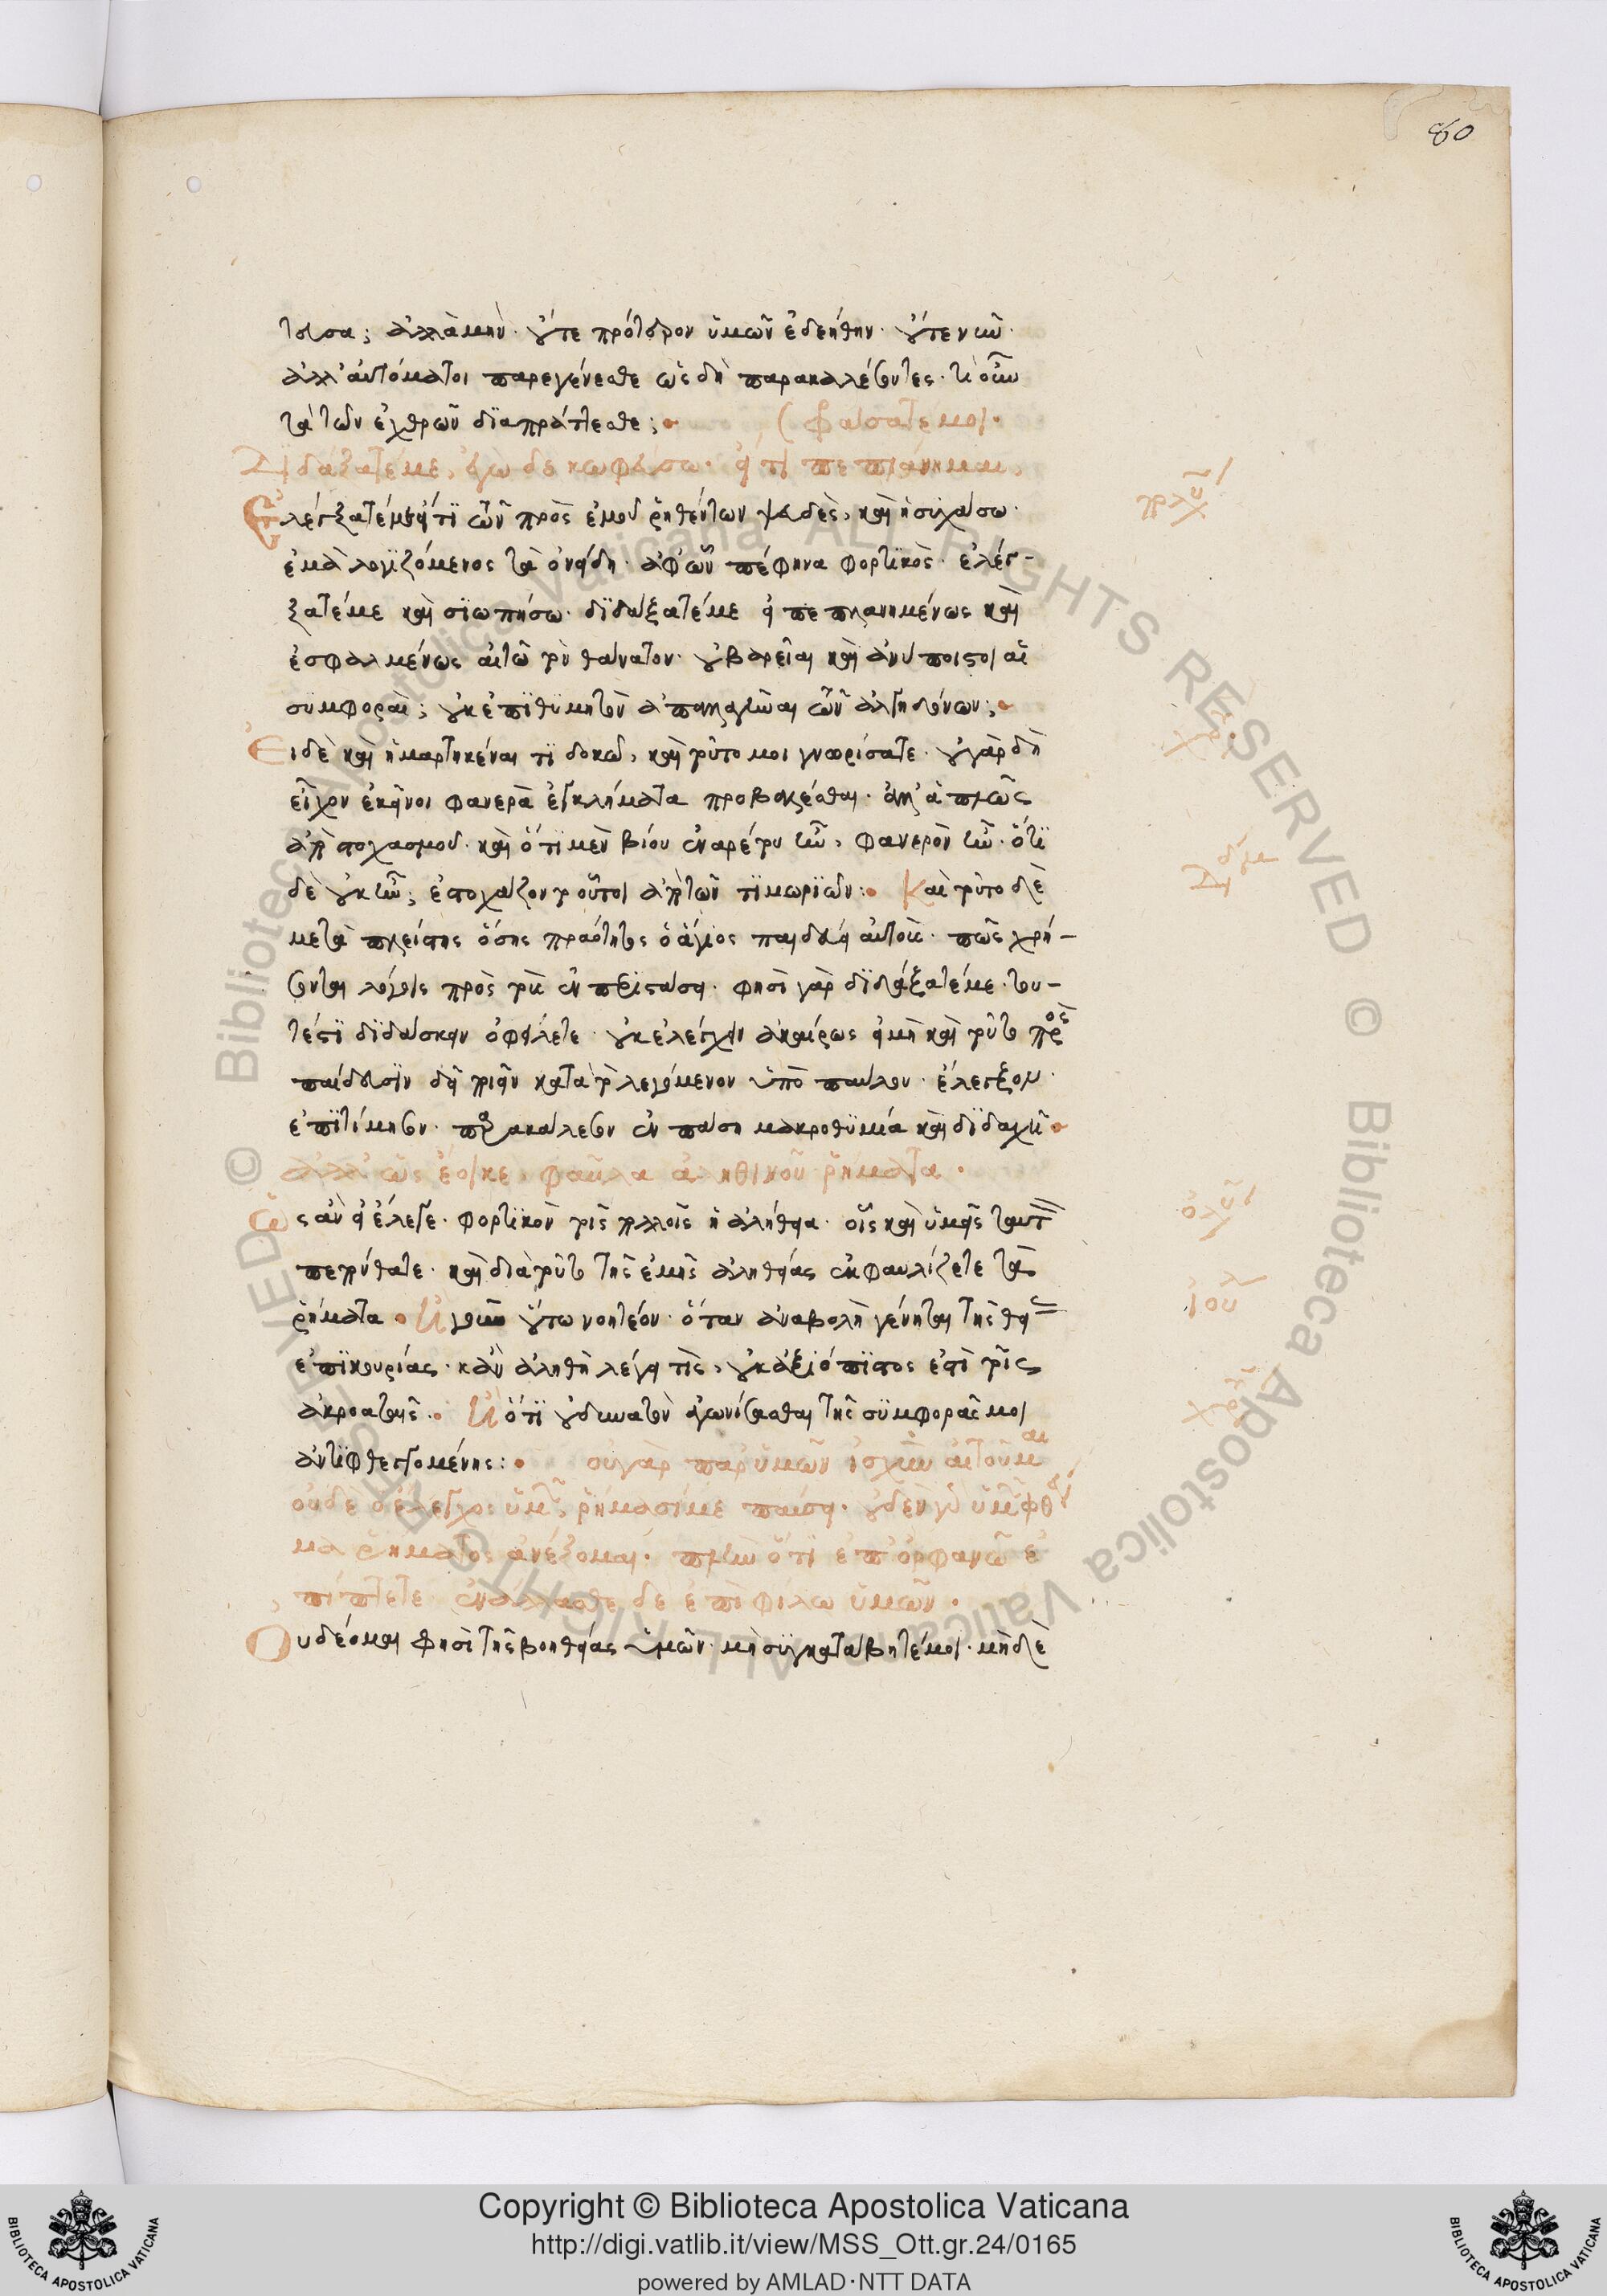 80
τησα; ἀλλὰ μὴν οὔτε πρότερον ὑμῶν ἐδεήθην· οὔτε νῦν·
ἀλλ' αὐτόματοι παρεγένεσθε ὡς δὴ παρακαλέσοντες· τί οὖν
τὰ τῶν ἐχθρῶν διαπράττεσθε;
φράσατέ μοι·
Διδάξατέ με, ἐγὼ δὲ κωφεύσω· εἴ τι πεπλάνημαι,
Ἐλέγξατέ με εἴ τι τῶν πρὸς ἐμοῦ ῥηθέντων ψευδὲς, καὶ ἡσυχάσω·
ἐμὰ λογιζόμενος τὰ ὀνείδη· ἀφ' ὧν πέφηνα φορτικός· ἐλέγ-
ξατέ με καὶ σιωπήσω· διδάξατέ με εἰ πεπλανημένως καὶ
ἐσφαλμένως αἰτῶ τὸν θάνατον· οὐ βαρεῖαι καὶ ἀνύποιστοι αἱ
συμφοραί; οὐκ ἐπιθυμητὸν ἀπαλλαγῶναι τῶν ἀλγηδόνων;
Εἰ δὲ καὶ ἡμαρτηκέναι τι δοκῶ, καὶ τοῦτό μοι γνωρίσατε· οὐ γὰρ δὴ
εἶχον ἐκεῖνοι φανερὰ ἐγκλήματα προβαλέσθαι· ἀλλ' ἁπλῶς
ἀπὸ στοχασμοῦ· καὶ ὅτι μὲν βίου ἐναρέτου ἦν, φανερὸν ἦν· ὅτι
δὲ οὐκ ἦν; ἐστοχάζοντο οὗτοι ἀπὸ τῶν τιμωριῶν: Καὶ τοῦτο δὲ
μετὰ πλείστης ὅσης πραότητος ὁ ἅγιος παιδεύει αὐτούς· πῶς χρή-
σονται λόγοις πρὸς τοὺς ἐν περιστάσει· φησὶ γὰρ διδάξατέ με· του-
τέστι διδάσκειν ὀφείλετε· οὐκ ἐλέγχειν ἀκαίρως εἰ μὴ καὶ τοῦτο πρὸς
παίδευσιν δεῖ ποιεῖν κατὰ τὸ λεγόμενον ὑπὸ παύλου· ἔλεγξον·
ἐπιτίμησον· παρακάλεσον ἐν πάσῃ μακροθυμίᾳ καὶ διδαχῇ
ἀλλ' ὡς ἔοικε, φαῦλα ἀληθινοῦ ῥήματα·
Ὡς ἂν εἰ ἔλεγε· φορτικὸν τοῖς πολλοῖς ἡ ἀλήθεια· οἷς καὶ ὑμεῖς ταυτὸ
πεπόνθατε· καὶ διὰ τοῦτο τῆς ἐμῆς ἀληθείας ἐκφαυλίζετε τὰ
ῥήματα
οὕτω νοητέον· ὅταν ἀναβολὴ γένηται τῆς θεί
ἐπικουρίας· κἂν ἀληθῆ λέγῃ τις, οὐκ ἀξιόπιστος ἐστὶ τοῖς
ἀκροαταῖς·
ὅτι οὐ δυνατὸν ἀγωνίσασθαι τῆς συμφορᾶς μοι
ἀντιφθεγγομένης:
οὐ γὰρ παρ' ὑμῶν ἰσχὺν αἰτοῦμαι
οὐδὲ ὁ ἔλεγχος ὑμῶν, ῥήμασί με παύσει· οὐδὲν γὰρ ὑμῶν φθέγ
μα ῥήματος ἀνέξομαι· πλὴν ὅτι ἐπ' ὀρφανῷ ἐ
πίπτετε ἐνάλλεσθε δὲ ἐπὶ φίλῳ ὑμῶν·
Οὐ δέομαι φησὶ τῆς βοηθείας ὑμῶν· μὴ συγκατάβητέ μοι· μηδὲ
Copyright © Biblioteca Apostolica Vaticana
http://digi.vatlib.it/view/MSS_Ott.gr.24/0165
powered by AMLAD·NTT DATA
BIBLIOTECA APOSTOLICA VATICANA
BIBLIOTECA APOSTOLICA VATICANA
© Biblioteca Apostolica Vaticana ALL RIGHTS RESERVED
© Biblioteca Apostolica Vaticana ALL RIGHTS RESERVED